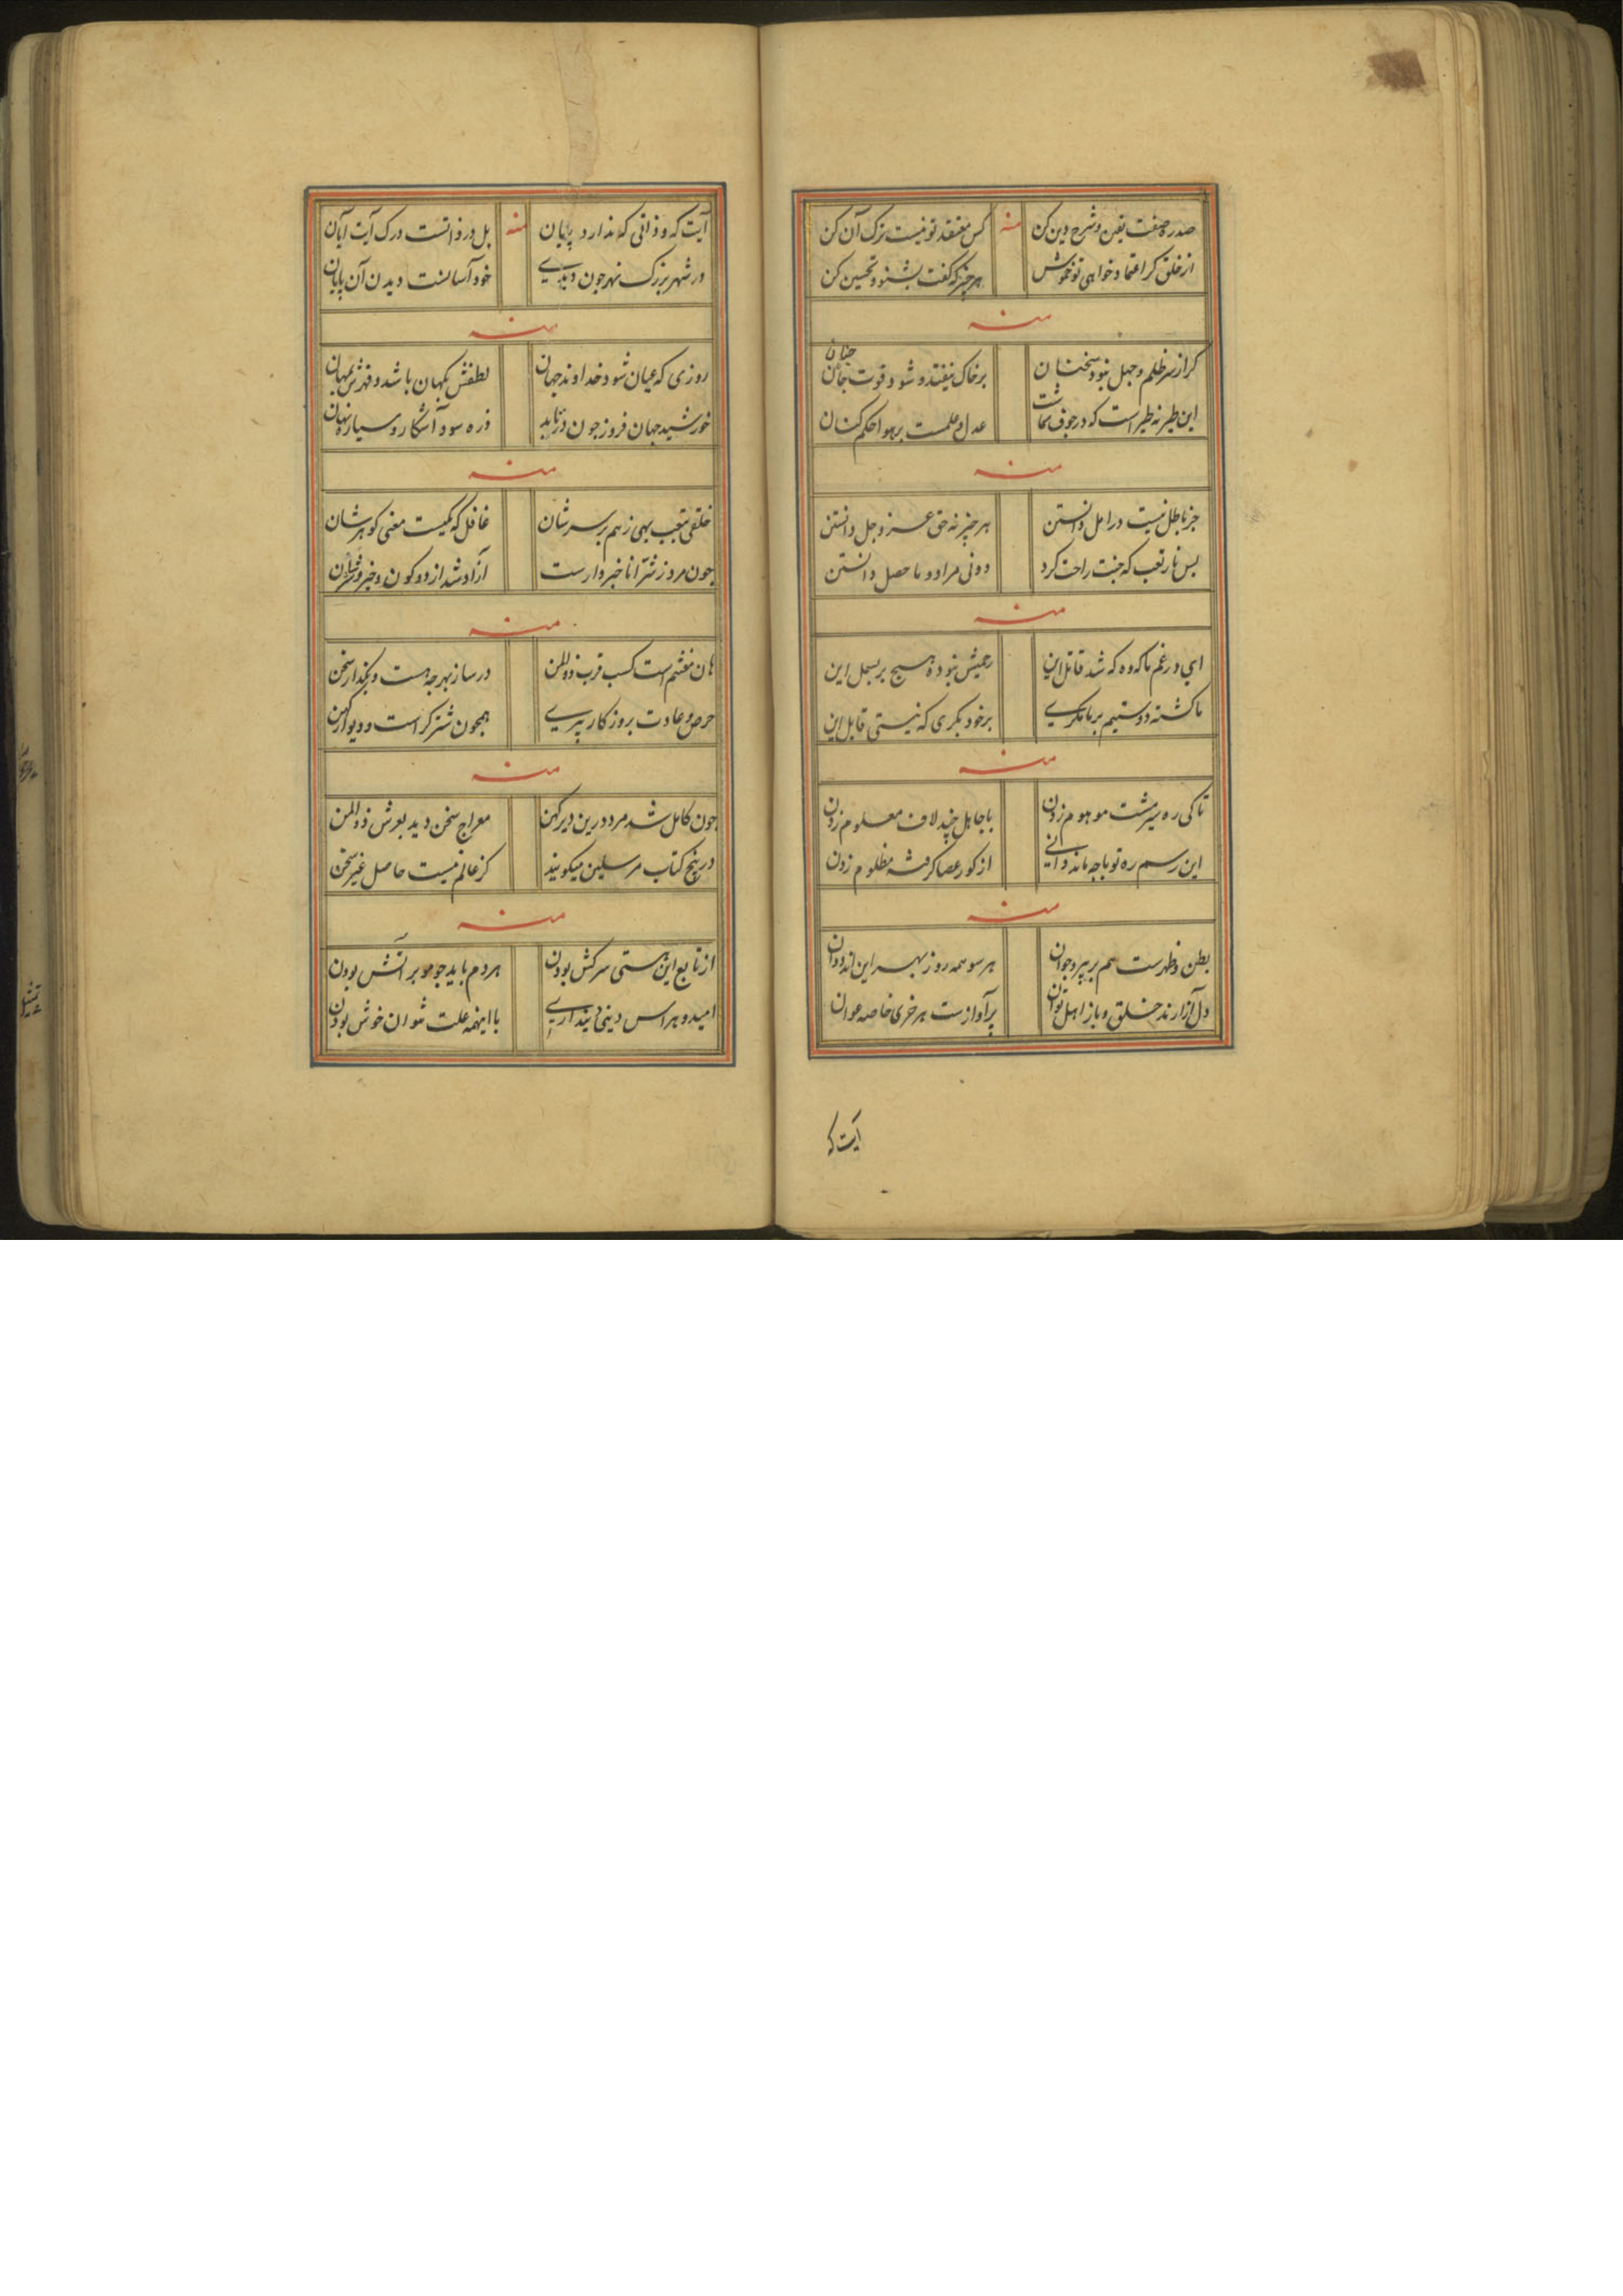 صد ره صفت یقین و شرح دین کن
منه
کس معتقد تو نیست ترک آن کن
از خلق کر اعتماد خواهی تو خموش
هر چیز که کفت بشنو و تحسین کن
منه
کر از سر ظلم و جهل نبود سخنان
بر خاک نیفتد و شود قوت جنان
این طیر نه طیر است که در جوف
عدل و علمست بر هوا حکم کنان
منه
جز باطل نیست در امل دانستن
هر چیز نه حق عز و جل دانستن
بس نار تعب که جنت راحت کرد
دونی مراد و ما حصل دانستن
منه
ای در غم ما که وه که شد قاتل این
رحمیش نبوده هیچ بر بسمل این
ما کشته دوستیم بر ما مکری
بر خود بکری که نیستی قابل این
منه
تا کی ره سر مشت موهوم زدن
با جاهل چند لاف معلوم زدن
این رسم ره تو با چه ماند دانی
از کور عصا کرفته مظلوم زدن
منه
بطن و ظهرست هم بر پیر و جوان
هر سو همه روز بهر این اند دوان
دل آزارند خلق و باز اهل توان
پر آوازست هر خری خاصه عوان
آیت که
آیت که و ذاتی که ندارد پایان
منه
بل در ذاتست درک آیت آیان
در شهر بزرک نهر جون دیدی
خود آسانست دیدن آن پایان
منه
روزی که عیان شود خداوند جهان
لطفش بمهان باشد و قهرش بمهان
خورشید جهان فروز جون در تابد
ذره سود آشکار و سیاره نهان
منه
خلقی بتعب بهی ز هم بر سر شان
غافل که یکیست معنی کوهر شان
جون مرد ز شر انا خیر وارست
آزاد شد از دو کون و خیر و شر شان
منه
هان مغتنم است کسب قرب ذوالمن
در ساز بهر جه هست و بکذار سخن
حرص و عادت بروزکار پیری
همجون شتر کر است و دیوار کهن
منه
جون کامل شد مرد درین دیر کهن
معراج سخن دید بعرش ذوالمن
در پنج کتاب مرسلین میکویند
کز عالم نیست حاصل غیر سخن
منه
از تابع این هستی سرکش بودن
هر دم باید جو مو بر آتش بودن
امید و هراس دینی دینداری
با اینهمه علت نتوان خوش بودن